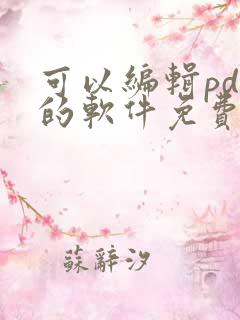 可以編輯pd
的軟件免費
蘇辭汐